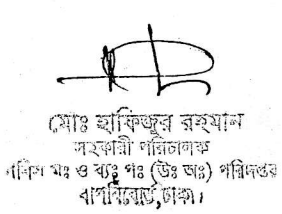 মোঃ হাফিজুর রহমান
সহকারী পরিচালক
মঃ ও ব্যঃ পঃ (উঃ অঃ) পরিদপ্তর
বাপবিবোর্ড, ঢাকা।